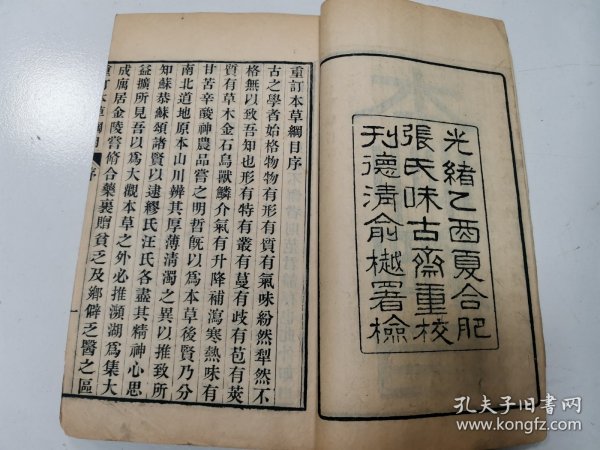 光緒乙酉夏合肥
張氏味古齋重校
刋德清俞樾署檢
重訂本草綱目序
古之學者始格物物有形有質有氣味紛然犁然不
格無以致吾知也形有特有叢有蔓有歧有苞有莢
質有草木金石鳥獸鱗介氣有升降補瀉寒熱味有
甘苦辛酸神農品嘗之明哲旣以爲本草後賢乃分
南北道地原本山川辨其厚薄清濁之異以推致所
知蘇恭蘇頌諸賢以逮繆氏汪氏各盡其精神心思
益擴所見吾以爲大觀本草之外必推瀕湖爲集大
成廣居金陵嘗脩合藥裹贈貧乏及鄉僻乏醫之區
重訂本草綱目 序
孔夫子旧书网
www.kongfz.com